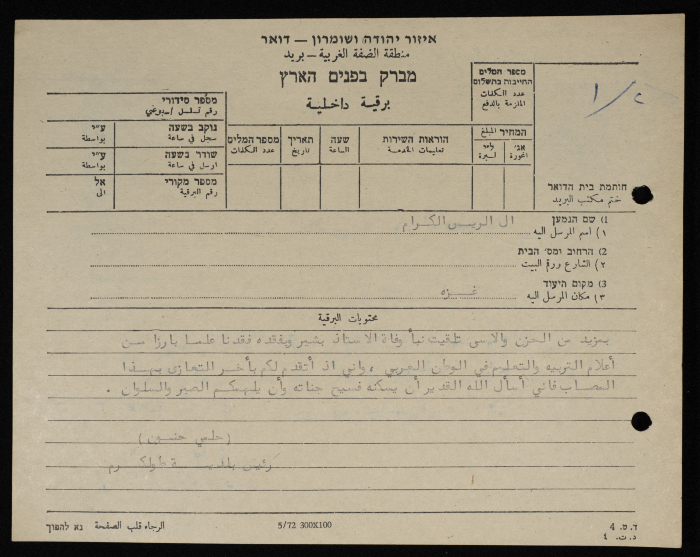 איזור יהודה ושומרון — דואר
منطقة الضفة الغربية – بريد
מברק בפנים הארץ
برقية داخلية
מספר המלים
החייבות בתשלום
عدد الكلمات
الملزمة بالدفع
המחיר المبلغ
אג׳ ل״י
اغورة ليرة
הוראות השירות
تعليمات الخدمة
שעה
الساعة
תאריך
تاريخ
מספר המלים
عدد الكلمات
מספר סידורי
رقم تسلسل
נוקב בשעה ע״י
سجل في ساعة بواسطة
שודר בשעה ע״י
ارسل في ساعة بواسطة
מספר מקורי אל
رقم البرقية الى
١/٢
חותמת בית הדואר
ختم مكتب البريد
1) שם הנמען
١) اسم المرسل اليه
ال الريس الكرام
2) הרחוב ומס׳ הבית
٢) الشارع ورقم البيت
3) מקום היעוד
٣) مكان المرسل اليه
غزه
محتويات البرقية
بمزيد من الحزن والاسى تلقيت نبأ وفاة الاستاذ بشير وبفقده فقدنا علما بارزا من
أعلام التربيه والتعليم في الوطن العربي ، واني اذ أتقدم لكم بأحر التعازى بهذا
المصاب فاني أسأل الله القدير أن يسكنه فسيح جناته وأن يلهمكم الصبر والسلوان .
(حلمي حنون)
رئيس بلدية طولكرم
ד. מ. 4
د. ت. ٤
5/72 300X100
الرجاء قلب الصفحة נא להפוך